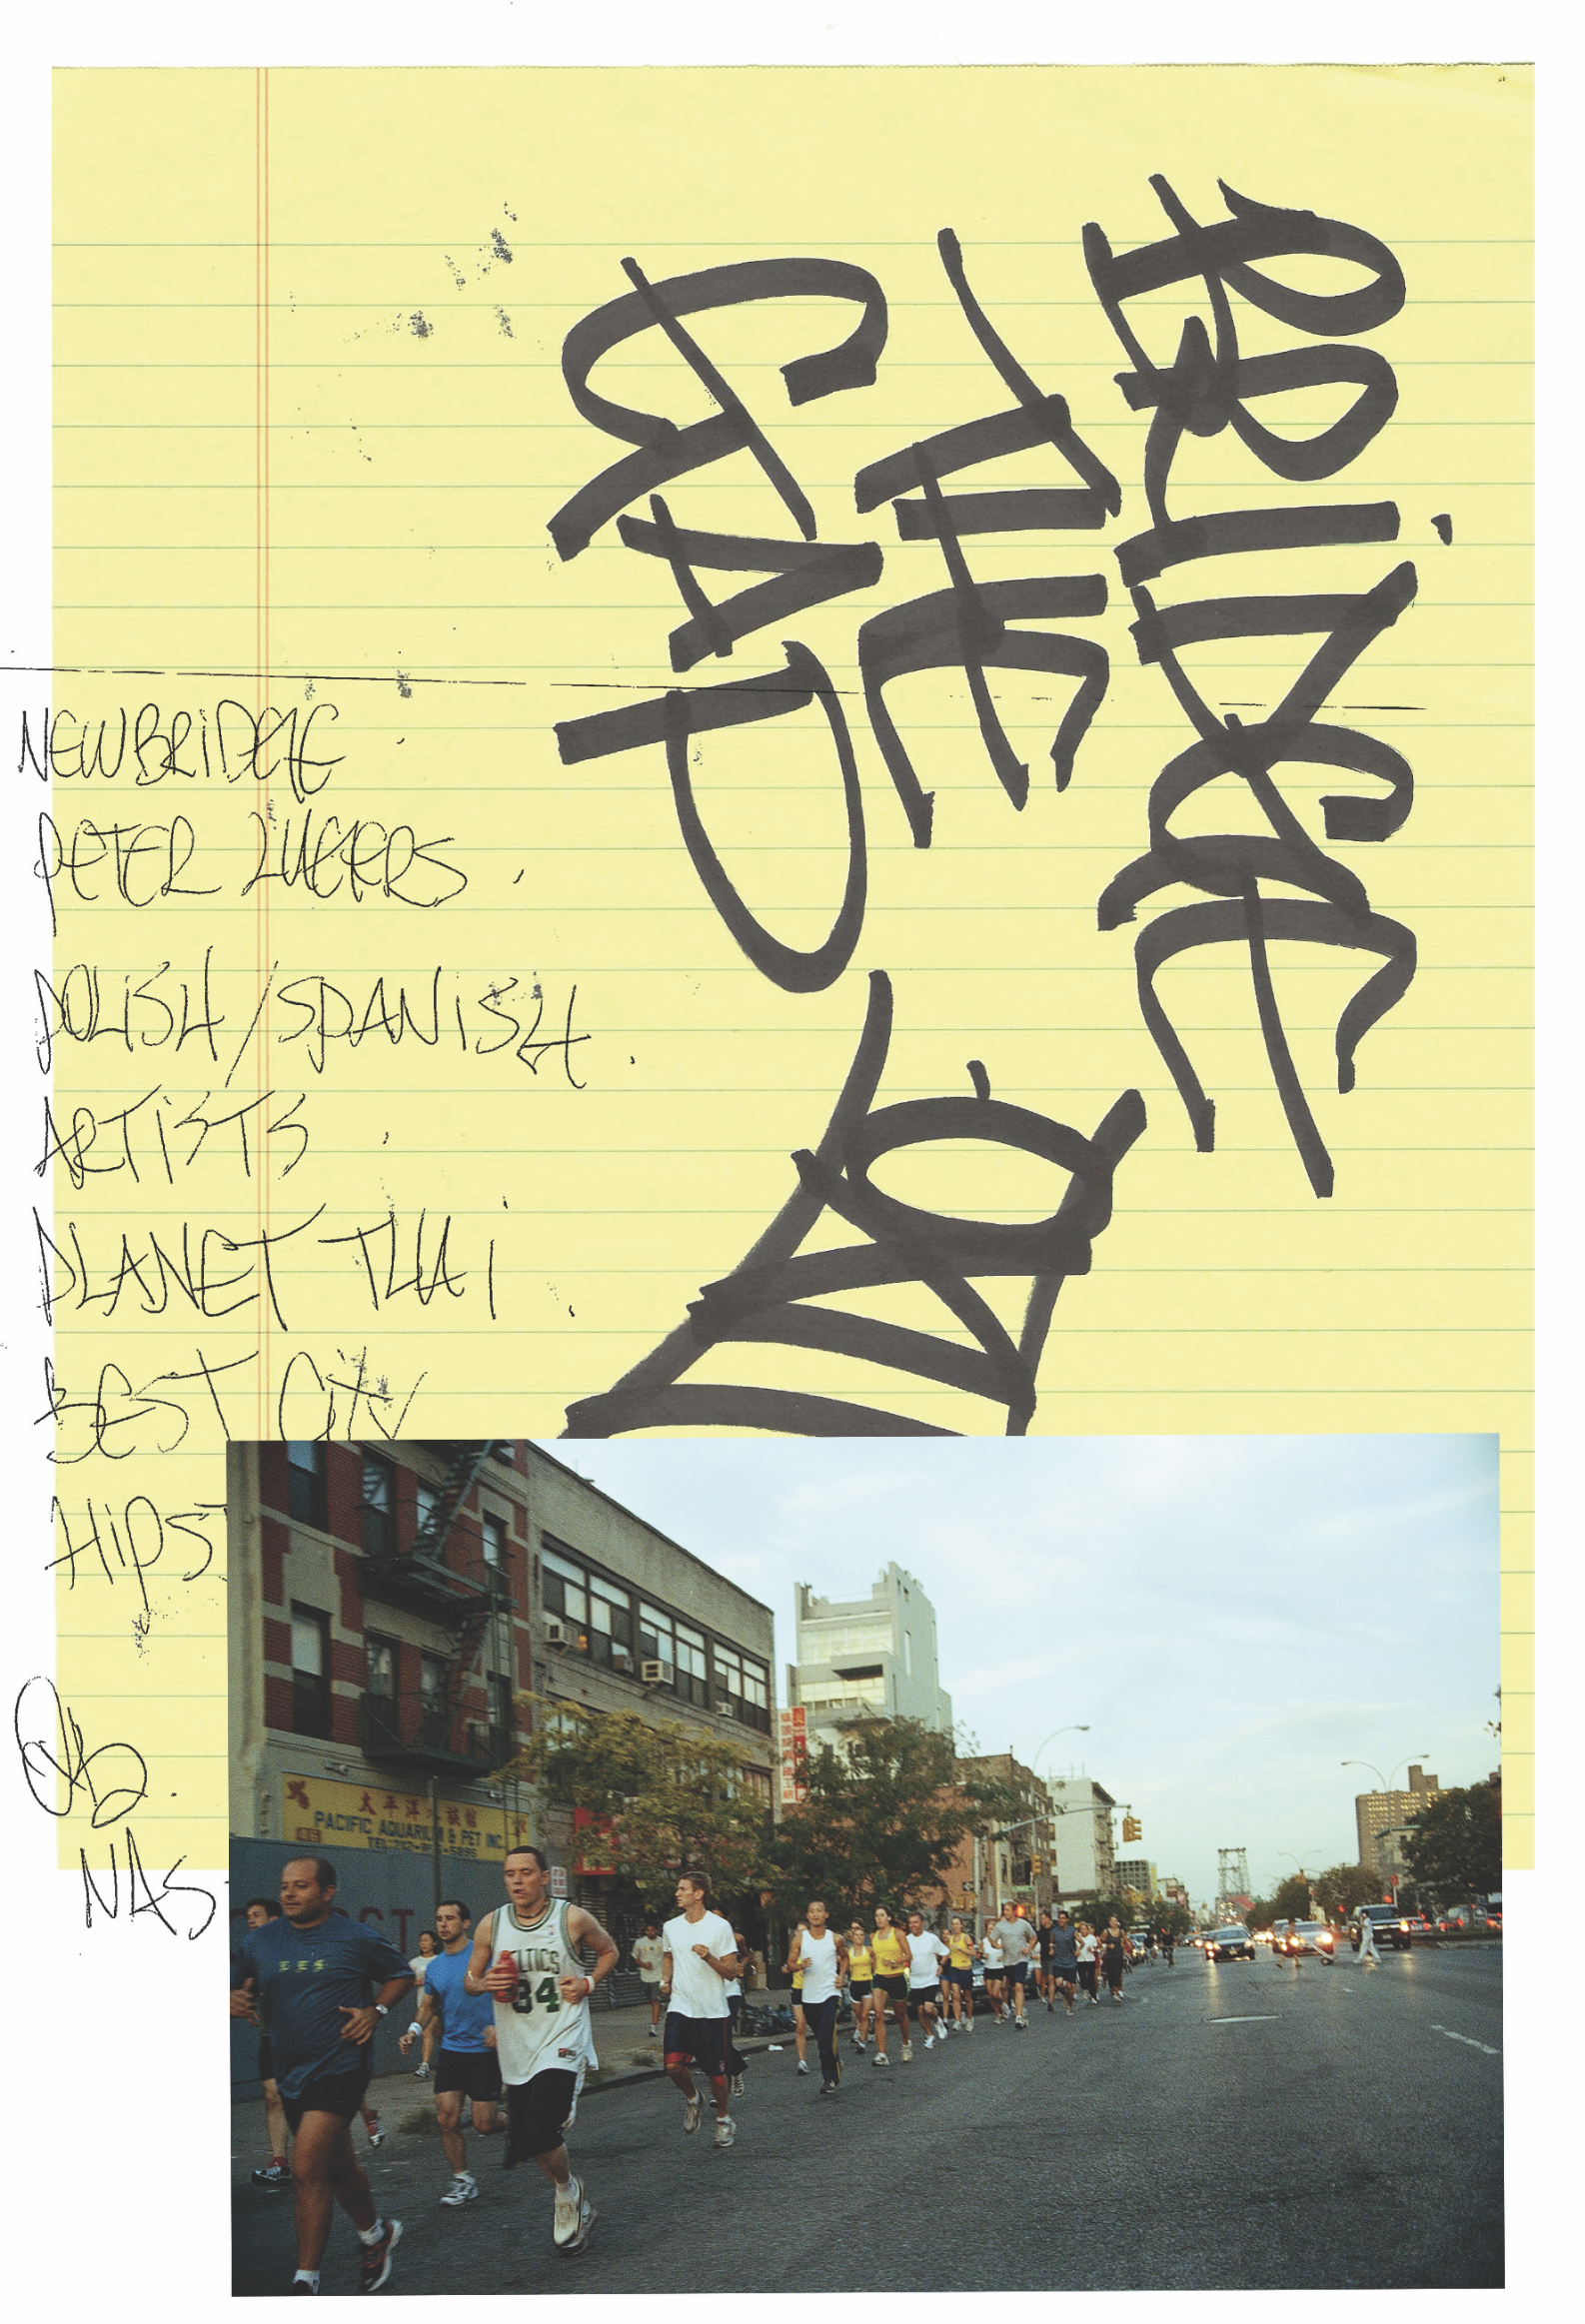 BRIDGE
THE
GAP
NEWBRIDGE.
PETER LUGERS.
POLISH/SPANISH.
ARTISTS.
PLANET THAI.
BEST CITY
HIPST
NAS
太平洋水族館
PACIFIC AQUARIUM & PET INC.
LTICS
34